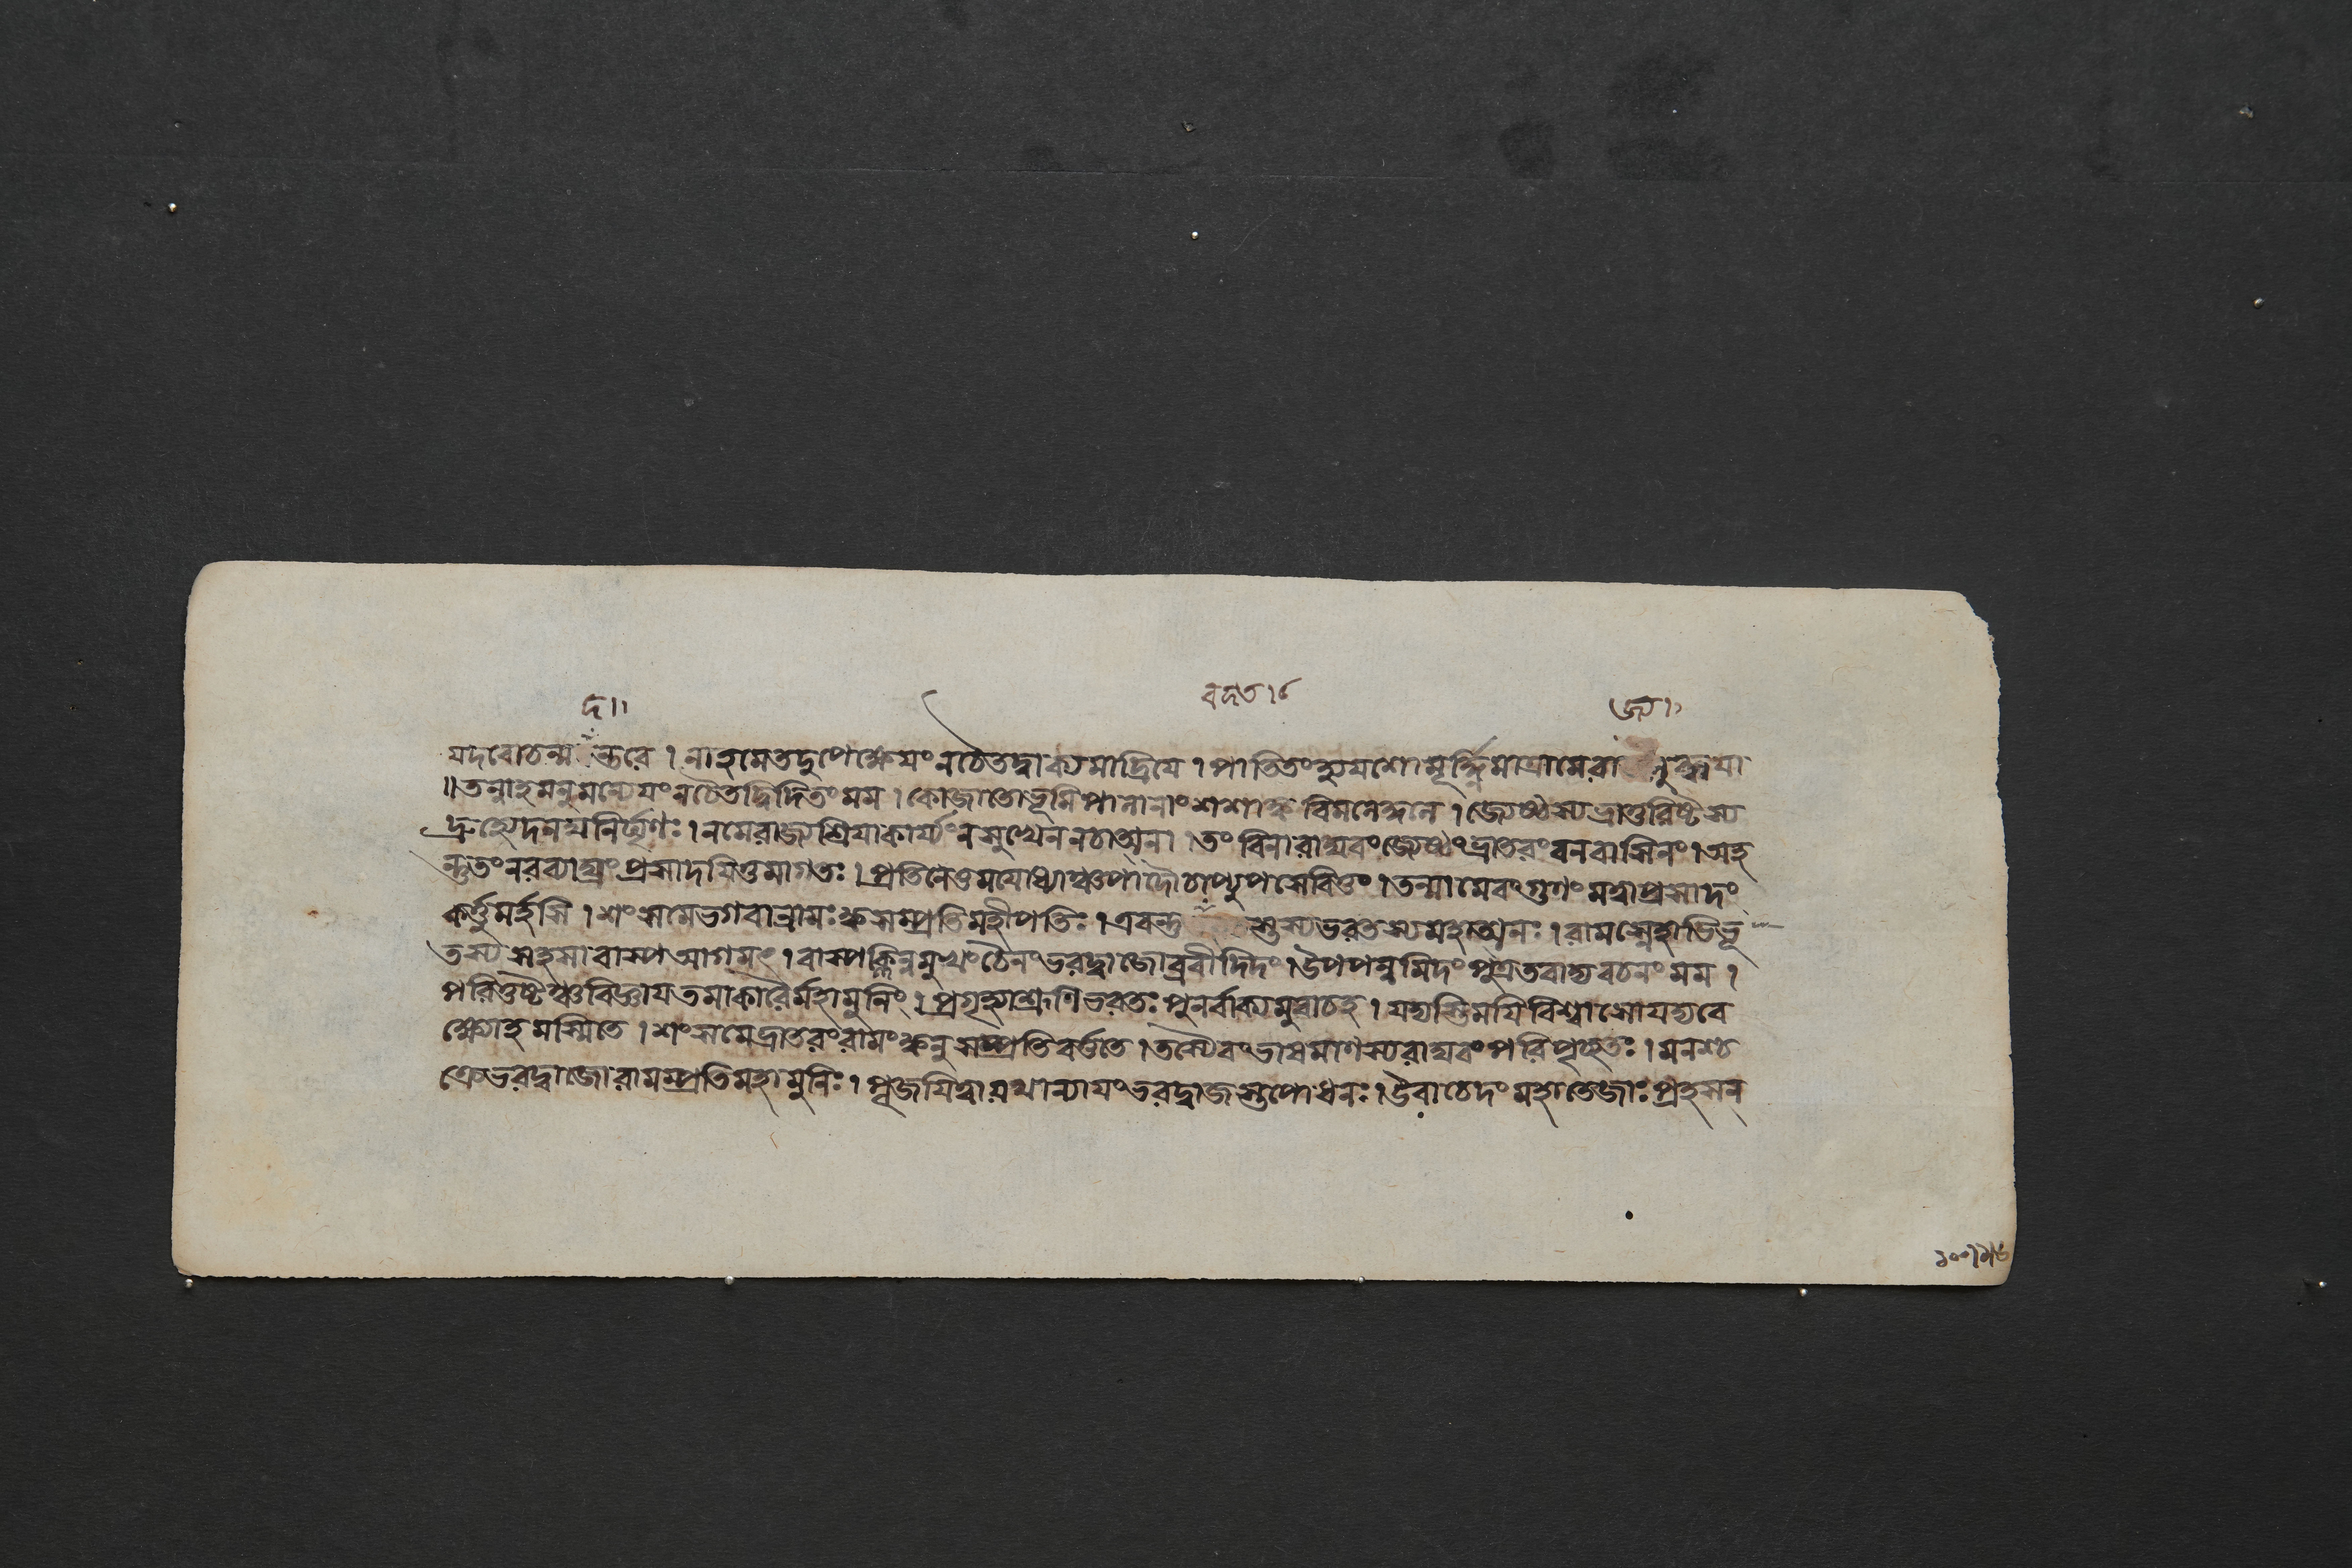 দ ॥
বদত । ৫
জ্য । ১
যদবোচন্ম ন্তরে । নাহমেতদুপেক্ষেয়ং নচৈতদ্বাক্যমাদ্রিয়ে । পাতিতংহ্যযশোমূর্দ্ধ্নিমাত্রামেরা লুব্ধয়া
॥ তন্নাহমনুমন্যেয়ং নচৈতদ্বিদিতংমম । কোজাতোভূমিপালানাং শশাঙ্কবিমলেকুলে । জ্যেষ্ঠস্যভ্রাতুরিষ্টস্য
দ্রুহ্যেদনঘনির্ঘৃণঃ । নমেরাজ্যশ্রিয়াকার্য্যং নসুখেননচাত্মনা । তং বিনারাঘবংজ্যেষ্ঠং ভ্রাতরং বনবাসিনং । অহ
ন্তুতং নরব্যাঘ্রং প্রসাদয়িতুমাগতঃ । প্রতিনেতুমযোধ্যাঞ্চপাদৌচাপ্যুপসেবিতুং । তন্মামেবংগুণং মত্বাপ্রসাদং
কর্ত্তুমর্হসি । শংসমেভগবান্রামঃ ক্বসম্প্রতিমহীপতিঃ । এবন্ত্র স্তস্যভরতস্যমহাত্মনঃ । রামস্নেহাভিভূ
তস্য সহসাবাস্পআগমৎ । বাস্পক্লিন্নমুখংচৈনং ভরদ্বাজোব্রবীদিদং । উপপন্নমিদং পুত্রতবাদ্যবচনং মম ।
পরিতুষ্টঞ্চবিজ্ঞায়তমাকারৈর্মহামুনিং । প্রগৃহ্যাশ্রূণিভরতঃ পুনর্বাক্যমুবাচহ । যদ্যস্তিময়িবিশ্বাসোযদ্যবে
ক্ষ্যোহমস্মিতে । শংসমেভ্রাতরংরামং ক্বনুসম্প্রতিবর্ত্ততে । তস্যৈবংভাষমাণস্যরাঘবংপরিপৃচ্ছতঃ । মনশ্চ
ক্রেভরদ্বাজোরামম্প্রতিমহামুনিঃ । পূজয়িত্বাযথান্যায়ং ভরদ্বাজস্তপোধনঃ । উবাচেদং মহাতেজাঃ প্রহসন